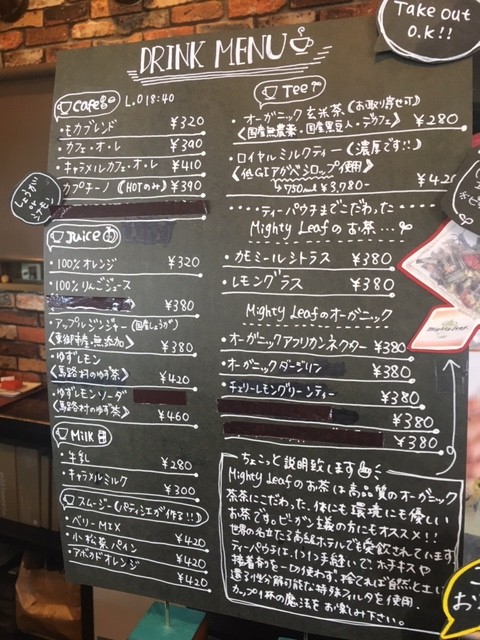 Take out
O.K!!
DRINK MENU
Cafe L.O 18:40
・モカブレンド ¥320
・カフェ・オ・レ ¥390
・キャラメルカフェ・オ・レ ¥410
・カプチーノ (HOTのみ) ¥390
Juice
・100%オレンジ ¥320
・100%りんごジュース
¥380
・アップルジンジャー (国産しょうが)
無添加》 ¥380
・ゆずレモン
《馬路村のゆず茶》 ¥420
・ゆずレモンソーダ
《馬路村のゆず茶》 ¥460
Milk
・牛乳 ¥280
・キャラメルミルク ¥300
スムージー (パティシエが作る!!)
・ベリーMIX ¥420
・小松菜パイン ¥420
・アボカドオレンジ ¥420
Tee
・オーガニック玄米茶 (お取り寄せ可)
《国産無農薬・国産黒豆入・デカフェ》 ¥280
・ロイヤルミルクティー (濃厚です!!)
《低GIアガベシロップ使用》
750ml ¥3,780-
‥‥ティーパウチまでこだわった‥‥
Mighty Leafのお茶…
・カモミールシトラス ¥380
・レモングラス ¥380
Mighty Leafのオーガニック
・オーガニックアフリカンネクター ¥380
・オーガニックダージリン ¥380
・チェリーレモングリーンティー
¥380
¥380
ちょこっと説明致します
Mighty Leafのお茶は高品質のオーガニック
茶葉にこだわった、体にも環境にも優しい
お茶です。ビーガン主義の方にもオススメ!!
世界の名立たる高級ホテルでも愛飲されています
ティーパウチは、1つ1つ手縫いで、ホチキスや
接着剤を一切使わず、捨てれば自然と土に
還る生分解可能な特殊フィルタを使用。
カップ1杯の魔法をお楽しみ下さい。